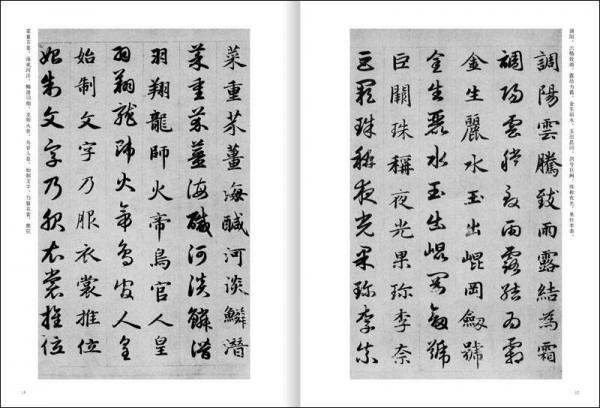 調陽雲騰致雨露結為霜
調陽雲騰致雨露結為霜
金生麗水玉出崐岡劒號
金生麗水玉出崐岡劒號
巨闕珠稱夜光果珍李柰
巨闕珠稱夜光果珍李柰
菜重芥薑海醎河淡鱗潛
菜重芥薑海醎河淡鱗潛
羽翔龍師火帝鳥官人皇
羽翔龍師火帝鳥官人皇
始制文字乃服衣裳推位
始制文字乃服衣裳推位